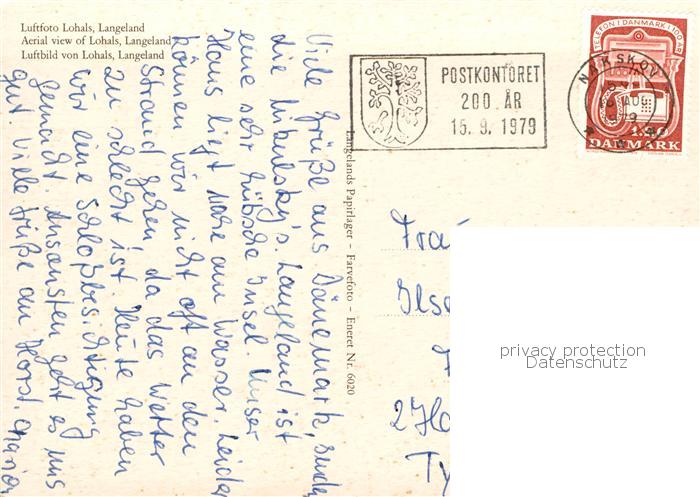 Luftfoto Lohals, Langeland
Aerial view of Lohals, Langeland
Luftbild von Lohals, Langeland
POSTKONTORET
200 ÅR
15. 9. 1979
NAKSKOV
AUG
TELEFON I DANMARK 100 ÅR
DANMARK
Viele Grüße aus Dänemark,
die Langeland ist
eine sehr hübsche Insel. Unser
Haus liegt nahe am Wasser. Leider
können wir nicht oft an den
Strand gehen da das Wetter
zu schlecht ist. Heute haben
wir eine Schloßbesichtigung
gemacht. Ansonsten geht es uns
gut Viele Grüße an Horst. Marion
Langelands Papirlager - Farvefoto - Eneret Nr. 6020
Ilse
privacy protection
Datenschutz